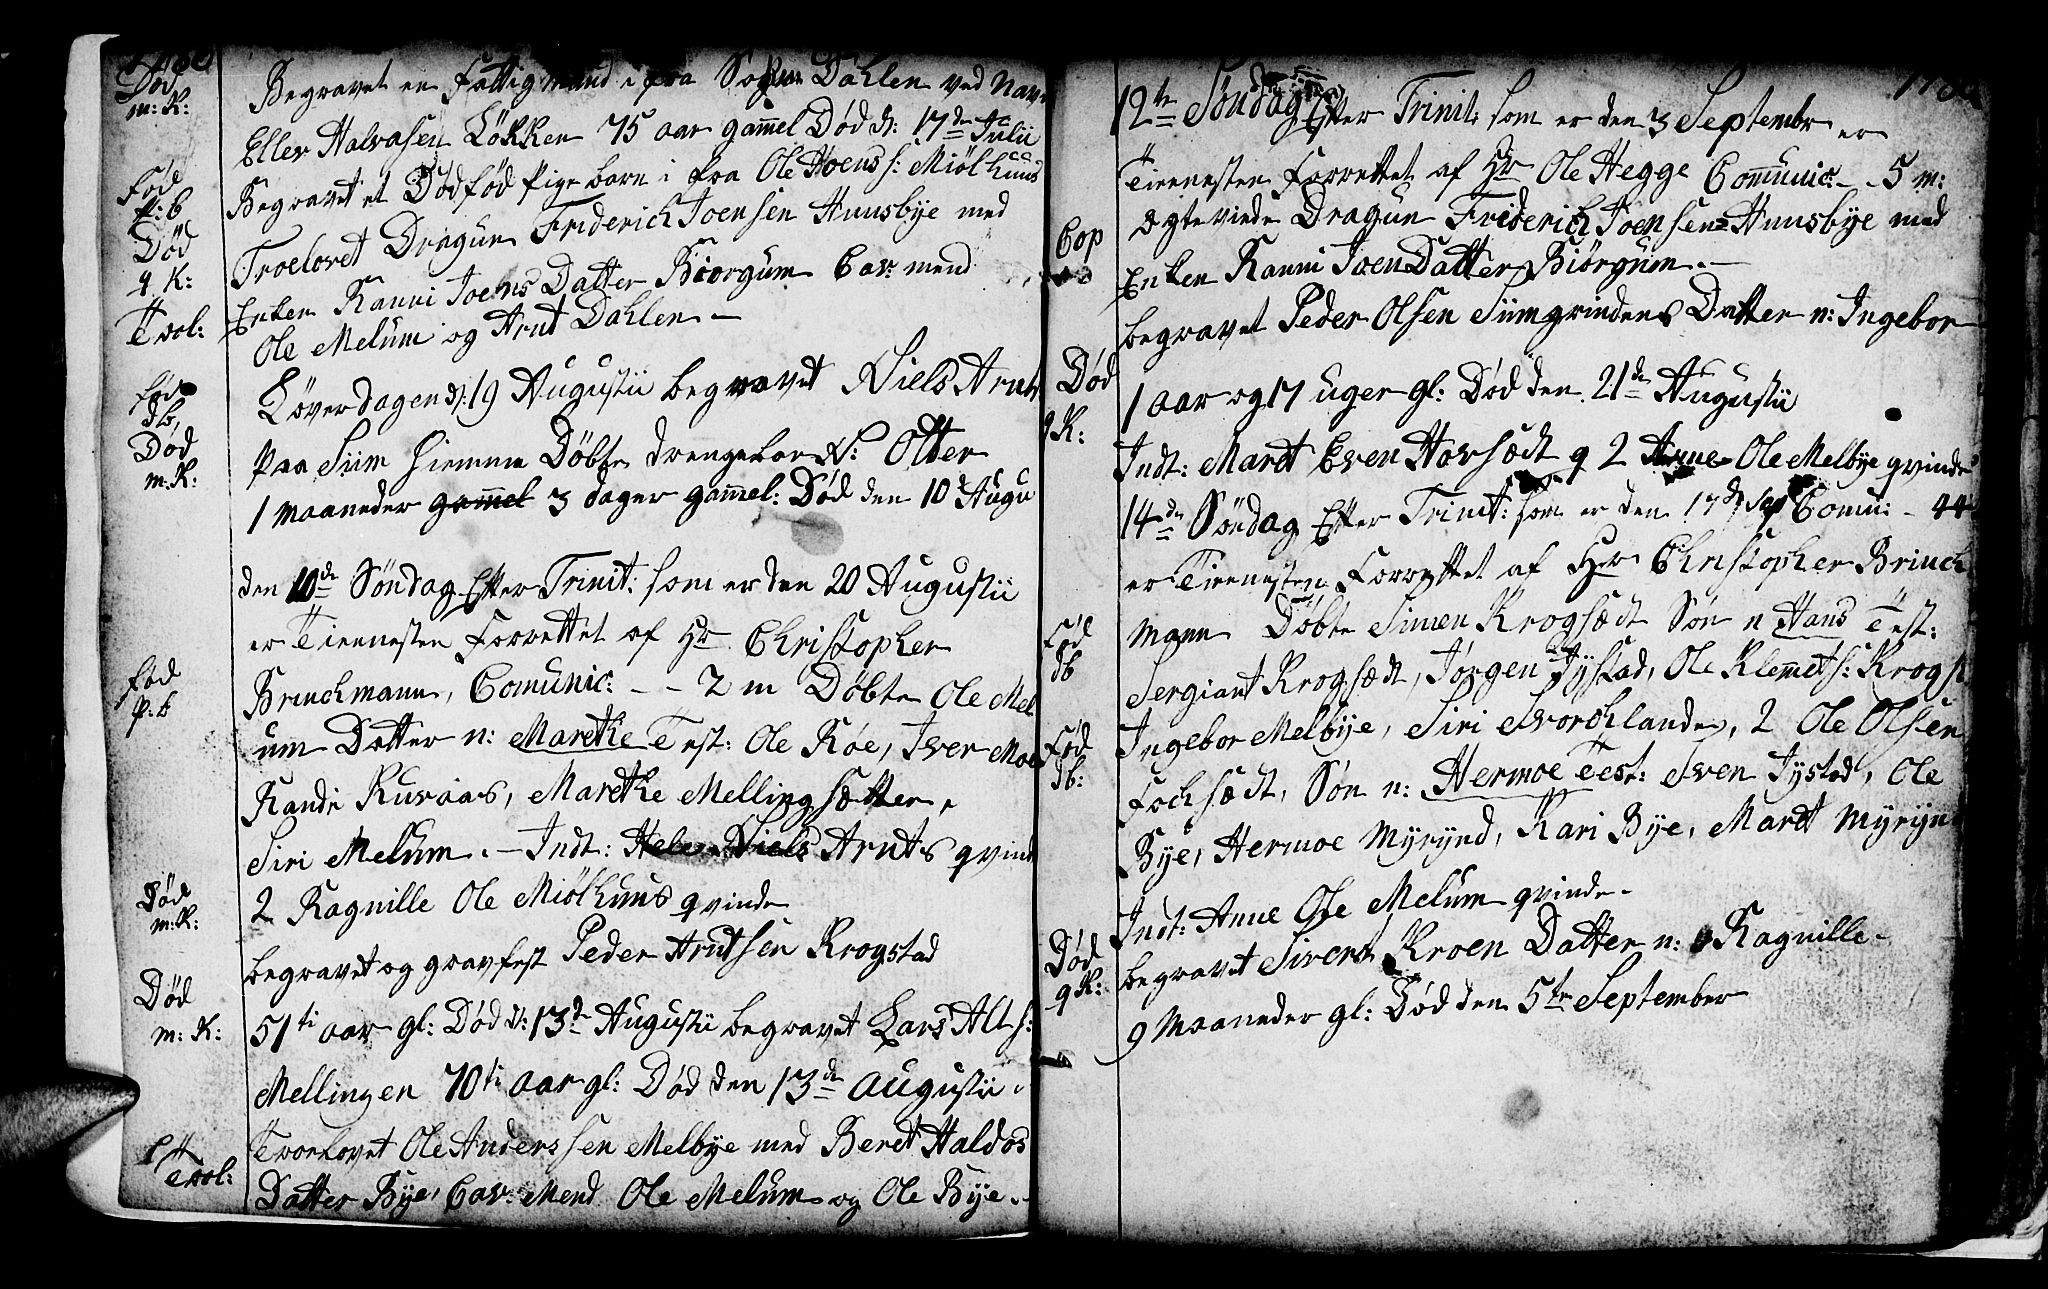 Død
m: K:
Begravet en Fattig mand i fra Dahlen ved Navn
Eller Halvasen Løkken 75 aar gammel Død d: 17de Julii
Fød
p: b
Begravet et Dødfød Pige barn i fra Ole Hoens s: Miølhuus
Død
q K:
Troelovet Dragun Friderich Joensen Huusbye med
Trol:
Enken Ranni Joens Datter Biorgum Cav: mend
Ole Melum og Arnt Dahlen –
Fød
db,
Løverdagen d: 19 Augustii begravet Niels Arnts
Død
m: K:
paa Siim Hiemme Døbte drengebarn N: Olter
1 maaneder gammel 3 dager gammel: Død den 10 d Augu
den 10de Søndag Efter Trinit: som er den 20 Augustii
er Tieenesten Forrettet af Hr Christopher
Fød
p: b
Brinchmann, Comunic: – – 2 m Døbte Ole Mel
um Datter n: Marethe Test: Ole Røe, Iver Moe
Randi Ruvaas, Marethe Mellingsætter,
Siri Melum. – Indt: Niels Arnts qvind
2 Ragnille Ole Miølhuus qvinde
Død
m: K:
begravet og gravfest Peder Arntsen Krogstad
Død
m: K:
51ti aar gl: Død d: 13de Augustii begravet Lars Alt s:
Mellingen 70ti aar gl: Død den 13de Augustii.
Trol:
Troelovet Ole Anderssen Melbye med Beret Haldos
Datter Bye, Cav: Mend Ole Melum og Ole Bye. –
12te Søndag Efter Trinit: som er den 3 Septembr er
Tieenesten Forrettet af Hr Ole Hegge Comunic: – 5 m:
Cop
ægteviede Dragun Friderich Joensen Huusbye med
Enken Ranni Joen Datter Biørgum. –
begravet Peder Olsen Siimgrindens Datter n: Ingebor
Død
q K:
1 aar og 17 uger gl: Død den 21de Augustii
Indt: Maret Even Hovsædt q 2 Ole Melbye qvinde
14de Søndag Efter Trinit: som er den 17d Sep Comu: – 44
er Tieenesten Forrettet af Hr Christopher Brinch
Fød
db
mann Døbte Simen Krogsædt Søn n Hans Test:
Sergiant Krogsædt, Jørgen Jystad, Ole Klemmet s: Krogs
Fød
db:
Ingebor Melbye, Siri Svorchlande, 2 Ole Olsen
Fochsædt, Søn n: Hermoe Test: Sven Jystad, Ole
Bye, Hermoe Myrynd, Kari Bye, Maret Myrynd
Indt: Anne Ole Melum qvinde.
Død
q K:
begravet Sivert Kroen Datter n: Ragnille –
9 Maaneder gl: Død den 5te September